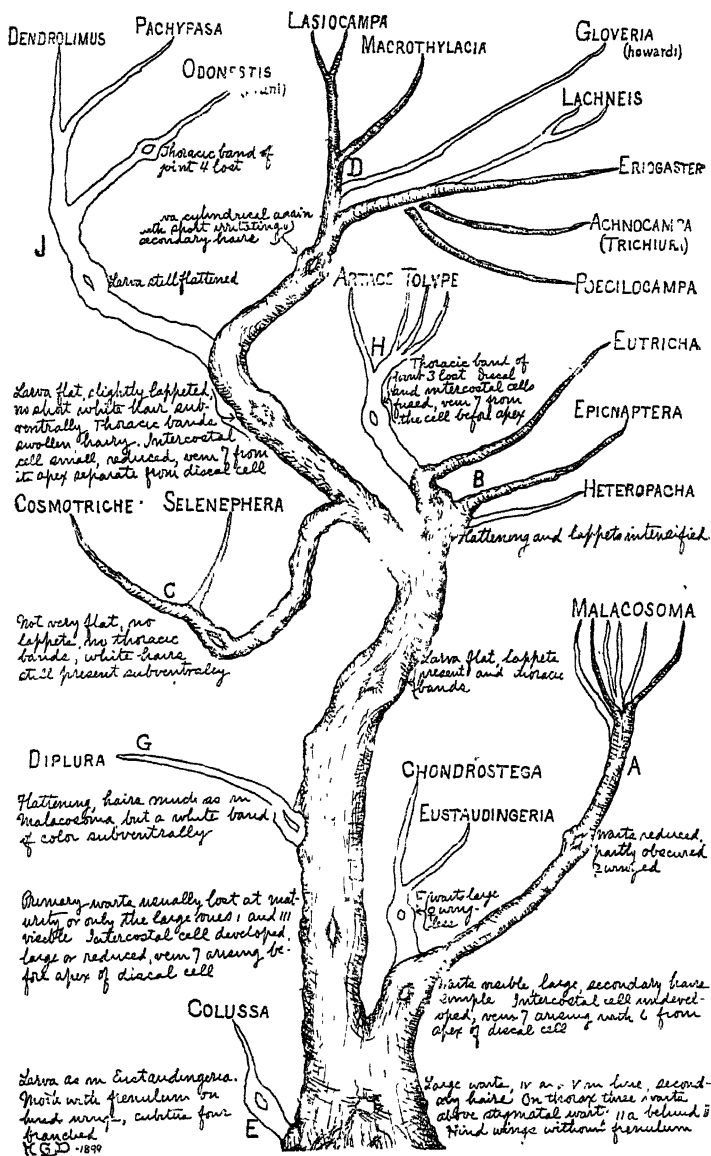 DENDROLIMUS
PACHYPASA
ODONESTIS
LASIOCAMPA
MACROTHYLACIA
GLOVERIA
(howardi)
LACHNEIS
ERIOGASTER
ACHNOCAMPA
(TRICHIURA)
POECILOCAMPA
Thoracic band of
joint 4 lost
D
J
cylindrical again
with short irritating
secondary hairs
Larva still flattened
ARTACE TOLYPE
H
EUTRICHA
Thoracic band of
joint 3 lost Discal
and intercostal cells
fused, vein 7 from
the cell before apex
EPICNAPTERA
B
HETEROPACHA
Flattening and lappets intensified.
Larva flat, slightly lappeted,
no short white hair sub-
ventrally Thoracic bands
swollen hairy. Intercostal
cell small, reduced, vein 7 from
its apex separate from discal cell
COSMOTRICHE
SELENEPHERA
C
Not very flat, no
lappets, no thoracic
bands, white hairs
still present subventrally
MALACOSOMA
Larva flat, lappets
present and thoracic
bands
A
DIPLURA
G
Flattening, hairs much as in
Malacosoma but a white band
of color subventrally
CHONDROSTEGA
EUSTAUDINGERIA
Warts reduced,
partly obscured
2 winged
F warts large
♀ wing-
less
Primary warts usually lost at mat-
urity or only the large ones I and III
visible Intercostal cell developed,
large or reduced, vein 7 arising be-
fore apex of discal cell
Warts visible, large, secondary hairs
simple Intercostal cell undevel-
oped, vein 7 arising with 6 from
apex of discal cell
COLUSSA
Larva as in Eustaudingeria.
Moth with frenulum on
hind wings, cubitus four
branched
H G D -1899
E
Large warts, IV and V in line, second-
ary hairs On thorax three warts
above stigmatal wart IIa behind II
Hind wings without frenulum